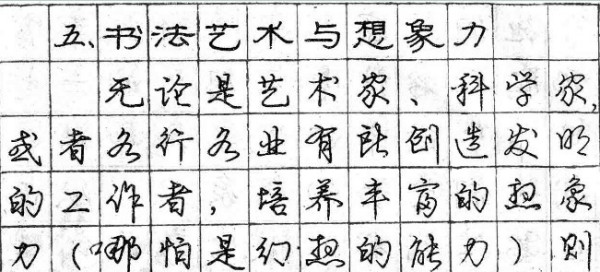 五、书法艺术与想象力
无论是艺术家、科学家,
或者各行各业有所创造发明
的工作者，培养丰富的想象
力（哪怕是幻想的能力）则